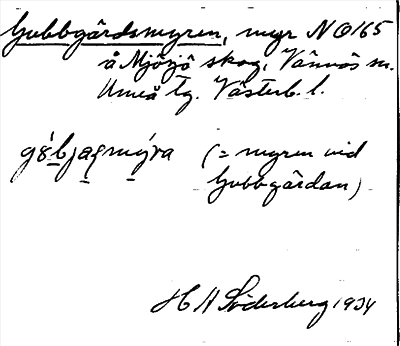 Gubbgårdsmyren, myr NO165
å Mjösjö skog, Vännäs sn.
Umeå tg. Västerb. l.
(= myren vid
Gubbgårdan)
H H Söderberg 1934